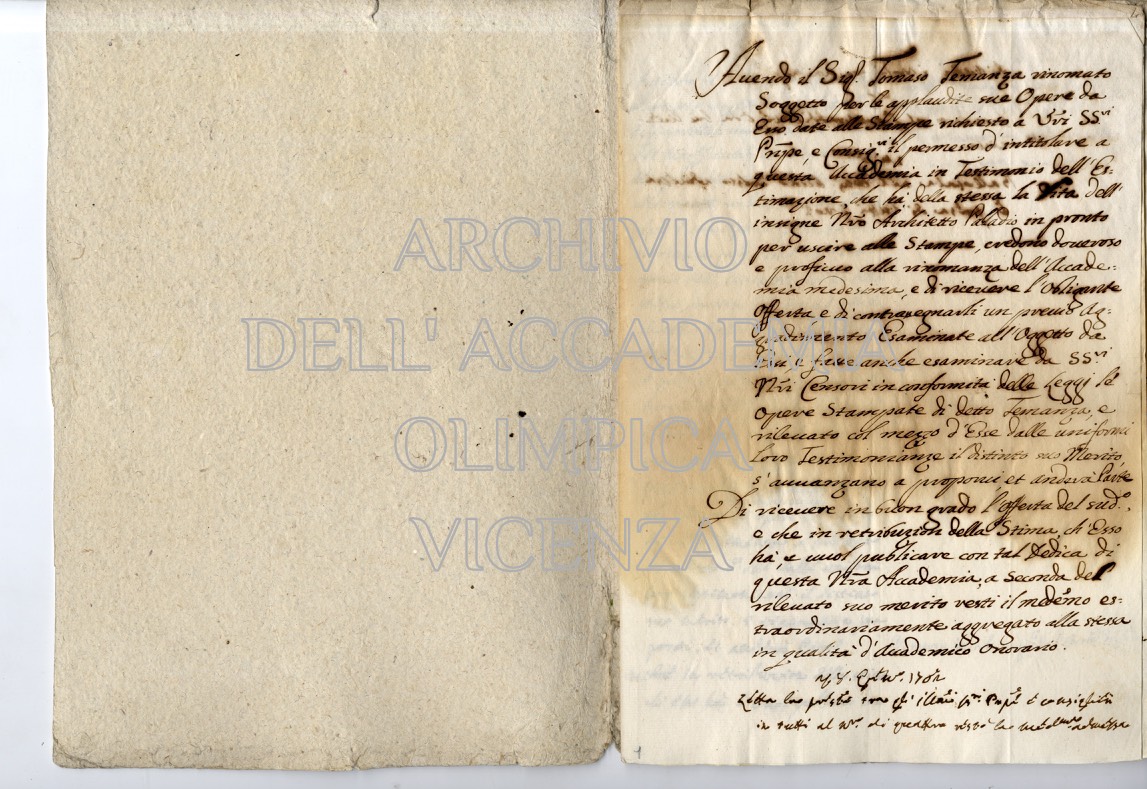 ARCHIVIO
DELL' ACCADEMIA
OLIMPICA
VICENZA
Auendo il Sig.r Tomaso Temanza rinomato
Soggetto per le applaudite sue Opere da
Esso date alle Stampe richiesto a SSri
Prñpe, e Consig.ri il permesso d'intitolare a
questa Accademia in Testimonio dell'Es-
timazione, che hà della stessa la Vita dell'
insigne Nro Architetto Paladio in pronto
per uscire alle Stampe, credono doueroso
e proficuo alla rinomanza dell'Accade-
mia medesima, e di riceuere l'Obligante
Offerta e di contrasegnarli un preciso Ag-
gradimento Esaminate all'Oggetto da
e fatte anche esaminare da SSri
Nri Censori in conformità delle Leggi le
Opere Stampate di detto Temanza, e
rileuato col mezzo d'Esse dalle uniformi
loro Testimonianze il distinto suo Merito
s'auuanzano a proponer, et anderà Parte
Di riceuere in buon grado l'offerta del sud.o,
e che in retribuzion della Stima, ch'Esso
hà, e uuol publicare con tal Dedica di
questa Nra Accademia, a Seconda del
rileuato suo merito resti il medemo es-
traordinariamente aggregato alla stessa
in qualità d'Accademico Onorario.
1762
Letta la pñte illmi Prñpe e consiglieri
in tutti al N.o di quattro restò la med.ma admessa
1